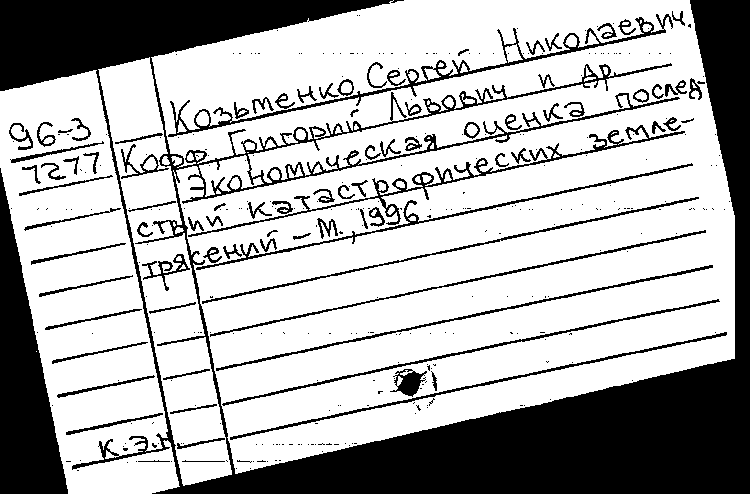 Козьменко, Сергей Николаевич.
96-3
7277
Кофф, Григорий Львович и др.
Экономическая оценка послед-
ствий катастрофических земле-
трясений - М., 1996.
к.э.н.